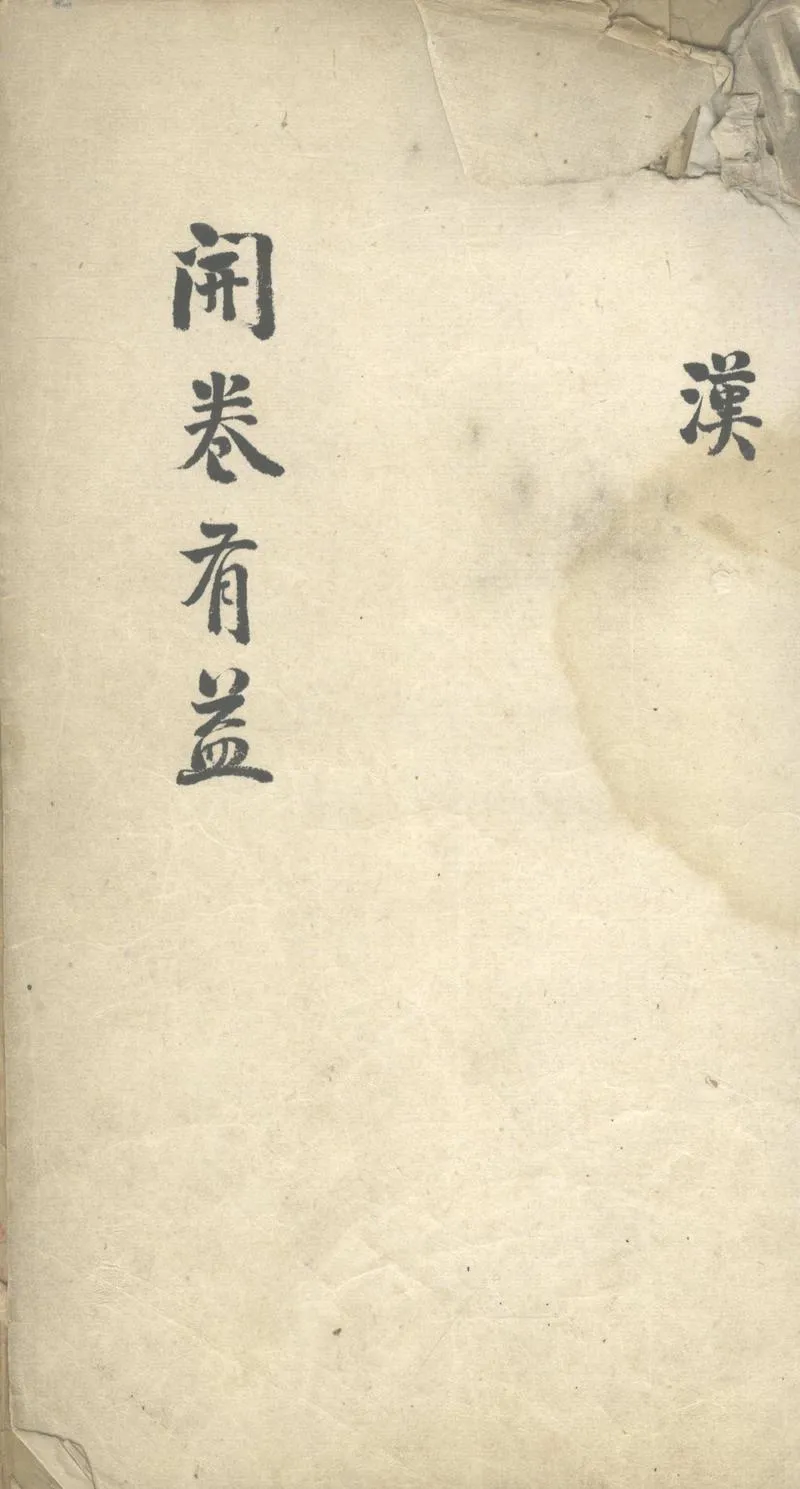 漢
開卷有益